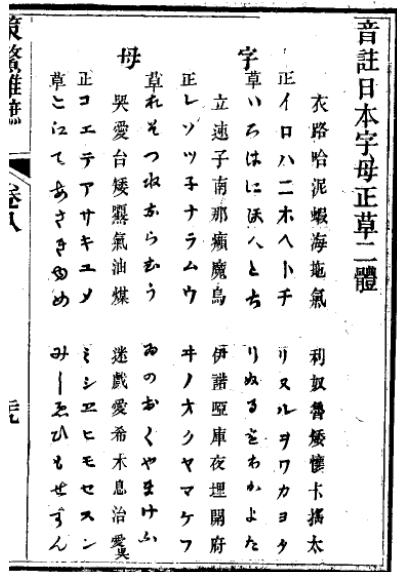 音註日本字母正草二體
衣路哈泥蝦海氣 利奴魯矮懷卡搖太
正イロハニホヘトチ リヌルヲワカヨタ
字
草いろはにほへとち りぬるをわかよた
立速子南那癩魔烏 伊諾啞庫夜埋開府
正レソツ子ナラムウ ヰノオクヤマケフ
母
草れそつねならむう ゐのおくやまけふ
愛台矮氣油煤 迷戲愛希木息治
正コエテアサキユメ ミシヱヒモセスン
草こえてあさきゆめ みしゑひもせすん
策鰲雜摭 卷八